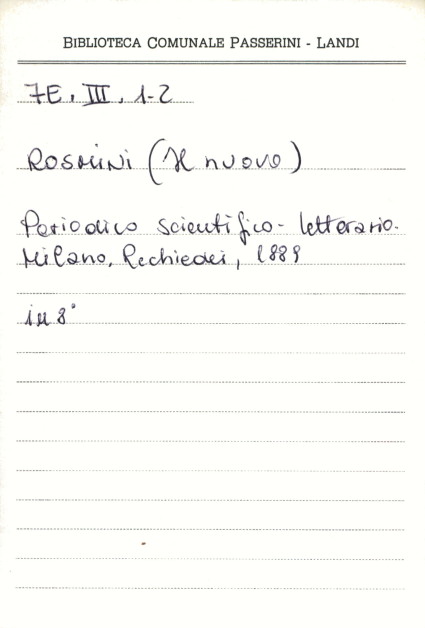 BIBLIOTECA COMUNALE PASSERINI - LANDI
7E. III. 1-2
ROSMINI (Il nuovo)
Periodico scientifico-letterario.
Milano, Rechiedei, 1889
in 8°